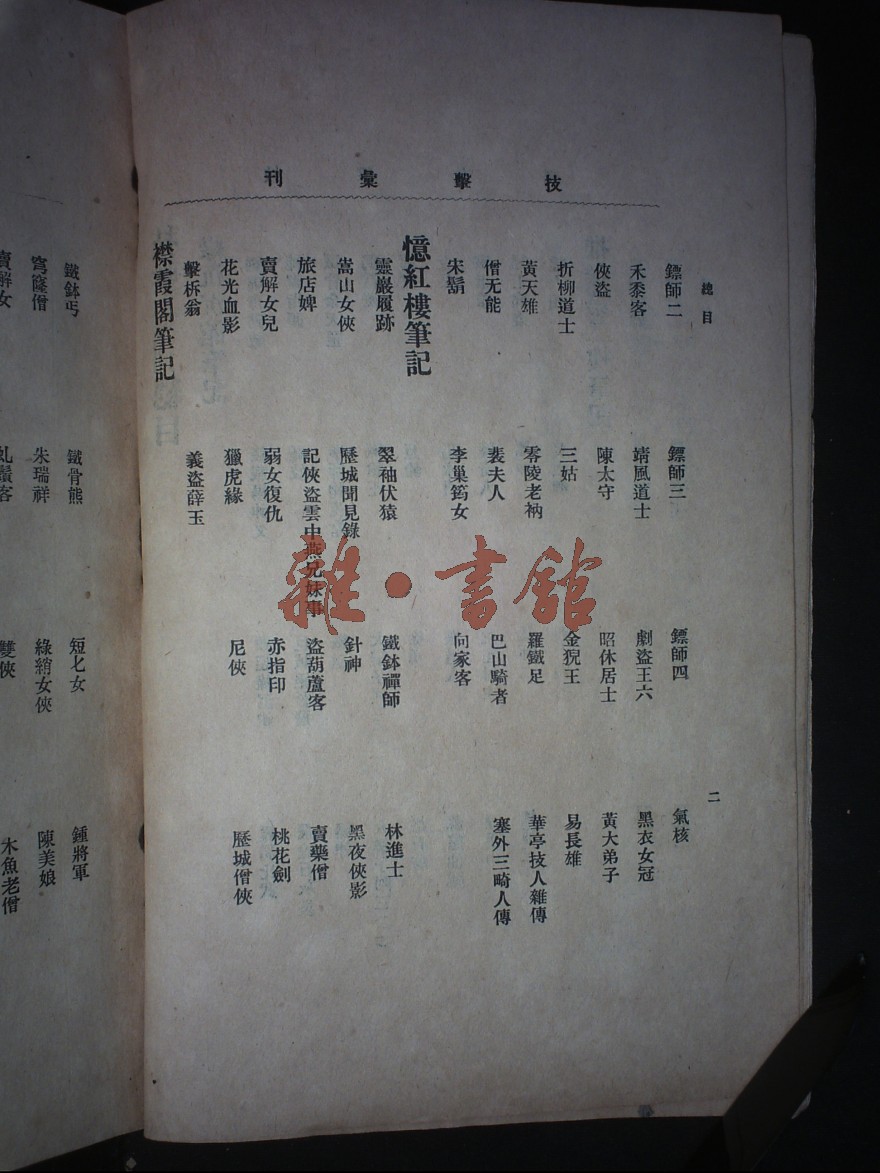 技擊彙刊
總目 二
鏢師二 鏢師三 鏢師四 氣核
禾黍客 靖風道士 劇盜王六 黑衣女冠
俠盜 陳太守 昭休居士 黃大弟子
折柳道士 三姑 金猊王 易長雄
黃天雄 零陵老衲 羅鐵足 華亭技人雜傳
僧无能 裴夫人 巴山騎者 塞外三畸人傳
宋 李巢筠女 向家客
憶紅樓筆記
靈巖履跡 翠袖伏猿 鐵鉢禪師 林進士
嵩山女俠 歷城聞見錄 針神 黑夜俠影
旅店婢 記俠盜雲中燕兄妹事 盜葫蘆客 賣藥僧
賣解女兒 弱女復仇 赤指印 桃花劍
花光血影 獵虎緣 尼俠 歷城僧俠
擊柝翁 義盜薛玉
襟霞閣筆記
鐵鉢丐 鐵骨熊 短匕女 鍾將軍
穹窿僧 朱瑞祥 綠綃女俠 陳美娘
賣解女 雙俠 木魚老僧
雜·書館